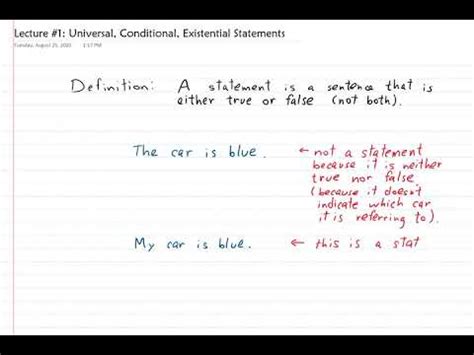 Lecture #1: Universal, Conditional, Existential Statements
Tuesday, August 25, 2020 2:17 PM
Definition: A statement is a sentence that is
either true or false (not both).
The car is blue. ← not a statement
because it is neither
true nor false
(because it doesn't
indicate which car
it is referring to).
My car is blue. ← this is a stat